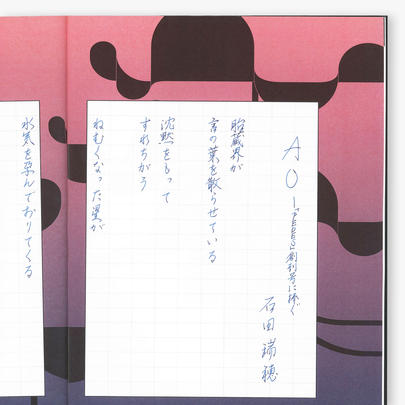 AO
創刊号に捧ぐ
石田瑞穂
胎蔵界が
言の葉を散らせている
沈黙をもって
すれちがう
ねむくなった星が
水気を孕んでおりてくる